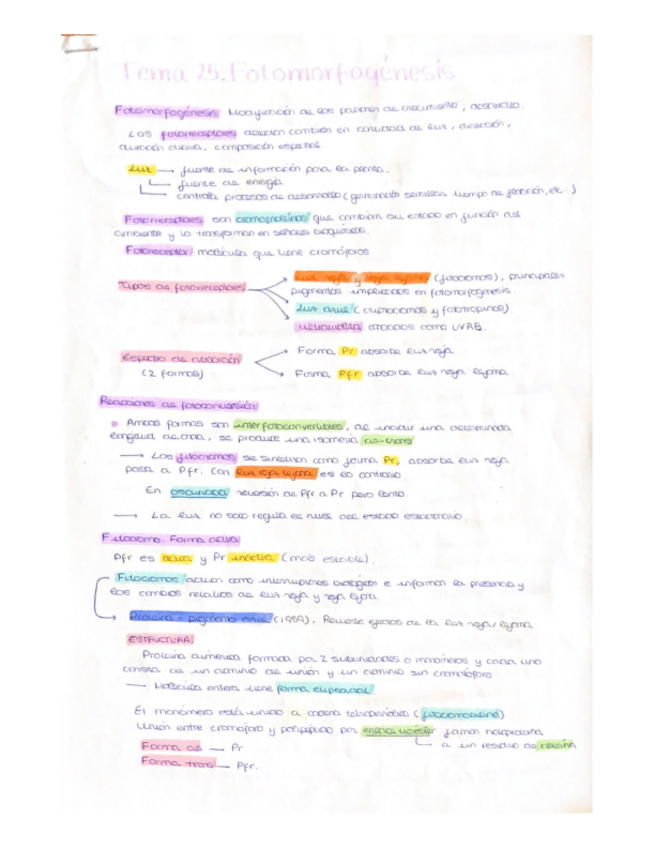 Tema 25. Fotomorfogénesis
Fotomorfogénesis: Modificación de los patrones de crecimiento, desarrollo.
Los fotorreceptores detectan cambios en conducta de luz, dirección,
duración diurna, composición espectral.
Luz → fuente de información para la planta.
fuente de energía
controla procesos de desarrollo (germinación semillera, tiempo de floración, etc.)
Fotorreceptores son cromoproteínas que cambian su estado en función del
ambiente y lo transforman en señales bioquímicas.
Fotoreceptor: molécula que tiene cromóforos
Tipos de fotorreceptores
Luz roja y roja lejana (fitocromos), principales
pigmentos implicados en fotomorfogénesis.
Luz azul (criptocromos y fototropinas)
ultravioleta conocidos como UVAB.
Espectro de absorción
(2 formas)
Forma Pr absorbe luz roja
Forma Pfr absorbe luz roja lejana
Reacciones de fotoconversión
Ambas formas son interfotoconvertibles, al incidir una determinada
longitud de onda, se produce una isomería cis-trans
→ Los fitocromos se sintetizan como forma Pr, absorbe luz roja
pasa a Pfr. Con luz roja lejana es lo contrario
En oscuridad reversión de Pfr a Pr pero lento.
→ La luz no solo regula el nivel del estado estacionario.
Fitocromo. Forma activa
Pfr es activa y Pr inactiva (más estable).
Fitocromos actúan como interruptores biológicos e informan la presencia y
los cambios relativos de luz roja y roja lejana
Proteína - pigmento azul (1959). Revierte efectos de la luz roja/lejana
ESTRUCTURA
Proteína dimérica formada por 2 subunidades o monómeros y cada uno
consta de un dominio de unión y un dominio sin cromóforo
→ Molécula entera tiene forma elipsoidal.
El monómero está unido a cadena tetrapirrólica (fitocromobilina)
Unión entre cromóforo y polipéptido por enlace tioéster forman holoproteína
a un residuo de cisteína
Forma cis — Pr
Forma trans — Pfr.